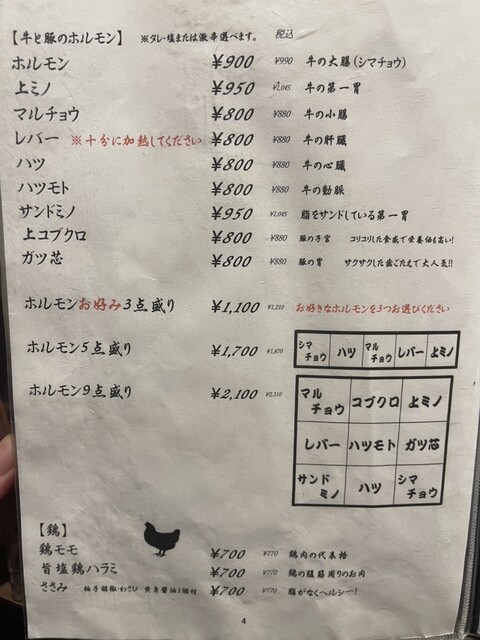 【牛と豚のホルモン】 ※タレ・塩または激辛選べます。 税込
ホルモン ¥900 ¥990 牛の大腸(シマチョウ)
上ミノ ¥950 ¥1,045 牛の第一胃
マルチョウ ¥800 ¥880 牛の小腸
レバー ※十分に加熱してください ¥800 ¥880 牛の肝臓
ハツ ¥800 ¥880 牛の心臓
ハツモト ¥800 ¥880 牛の動脈
サンドミノ ¥950 ¥1,045 脂をサンドしている第一胃
上コブクロ ¥800 ¥880 豚の子宮 コリコリした食感で栄養価も高い!
ガツ芯 ¥800 ¥880 豚の胃 サクサクした歯ごたえで大人気!!
ホルモンお好み3点盛り ¥1,100 ¥1,210 お好きなホルモンを3つお選びください
ホルモン5点盛り ¥1,700 ¥1,870
シマチョウ ハツ マルチョウ レバー 上ミノ
ホルモン9点盛り ¥2,100 ¥2,310
マルチョウ コブクロ 上ミノ
レバー ハツモト ガツ芯
サンドミノ ハツ シマチョウ
【鶏】
鶏モモ ¥700 ¥770 鶏肉の代表格
旨塩鶏ハラミ ¥700 ¥770 鶏の腹筋周りのお肉
ささみ 柚子胡椒・わさび・黄身醤油1個付 ¥700 ¥770 脂がなくヘルシー!
4